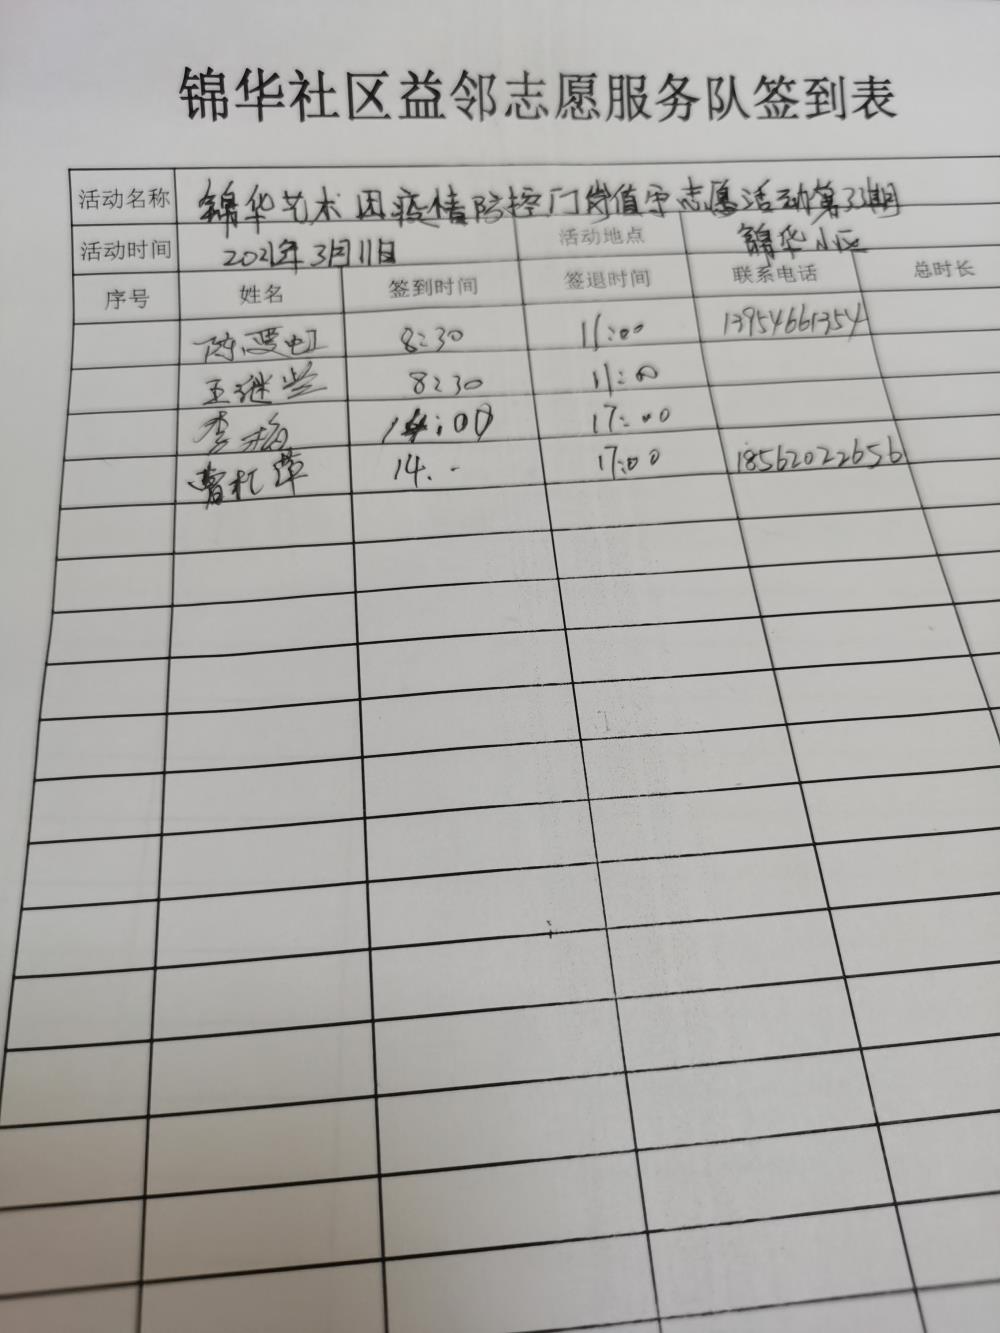 锦华社区益邻志愿服务队签到表
活动名称 锦华艺术 因疫情防控门岗值守志愿活动第33期
活动时间 2021年3月11日 活动地点 锦华小区
序号 姓名 签到时间 签退时间 联系电话 总时长
8:30 11:00 13954661354
8:30 11:00
李梅 14:00 17:00
14. 17:00 18562022656